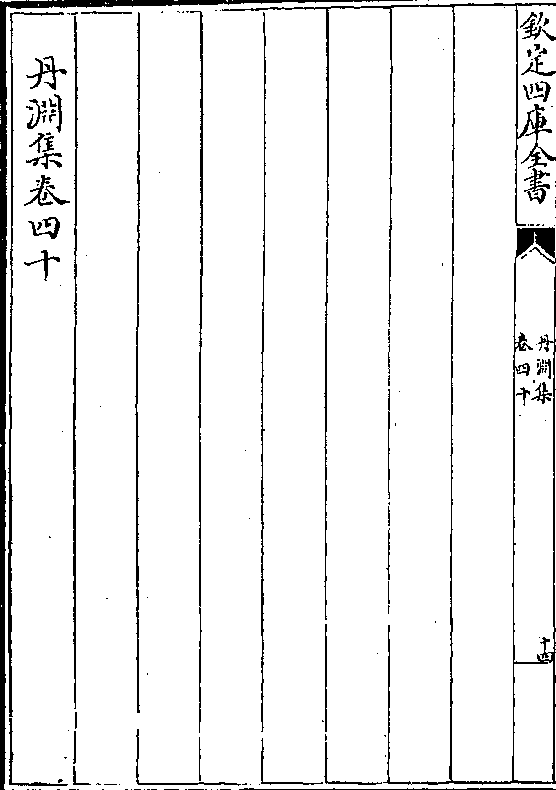 欽定四庫全書
丹淵集
卷四十
十四
丹淵集卷四十